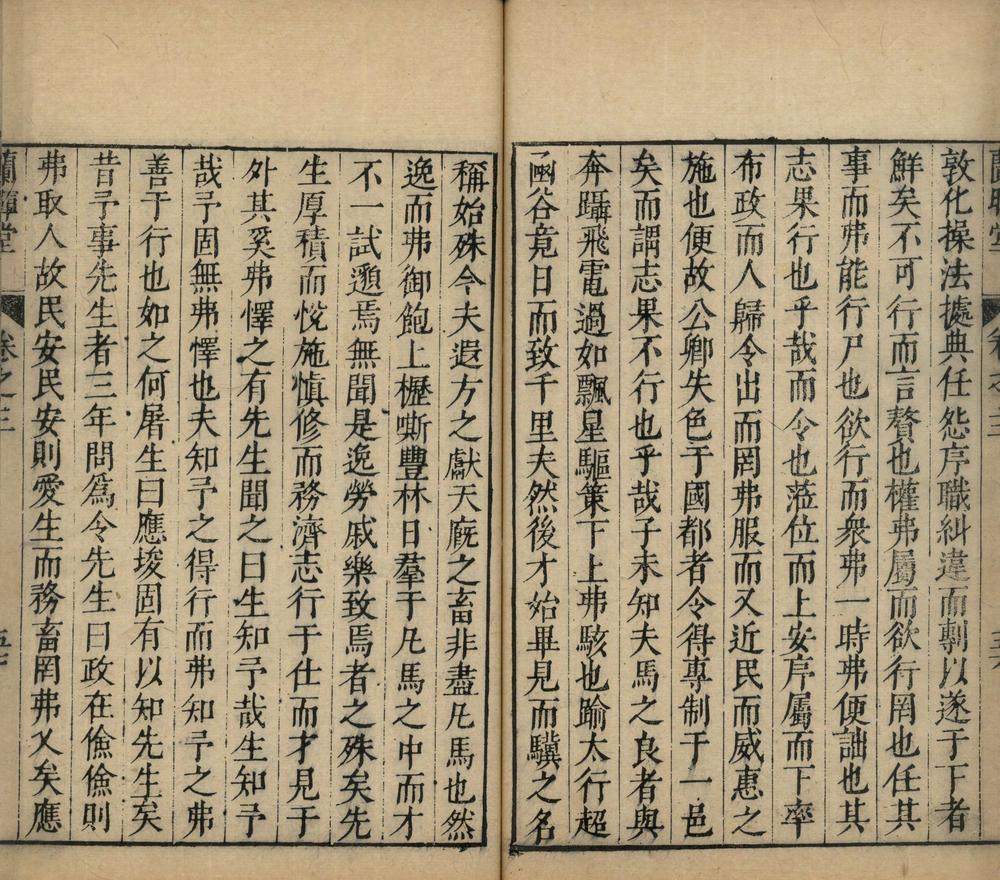 敦化操法攄典任怨序職糾違而勅以遂于下者
鮮矣不可行而言贅也權弗屬而欲行罔也任其
事而弗能行尸也欲行而衆弗一時弗便詘也其
志果行也乎哉而令也蒞位而上安序屬而下率
布政而人歸令出而罔弗服而又近民而威惠之
施也便故公卿失色于國都者令得專制于一邑
矣而謂志果不行也乎哉子未知夫馬之良者與
奔躡飛電過如飄星驅策下上弗駭也踰太行超
函谷竟日而致千里夫然後才始畢見而驥之名
稱始殊今夫遐方之獻天廐之畜非盡凡馬也然
逸而弗御飽上櫪嘶豐林日羣于凡馬之中而才
不一試邇焉無聞是逸勞戚樂致焉者之殊矣先
生厚積而悅施慎修而務濟志行于仕而才見于
外其奚弗懌之有先生聞之曰生知予哉生知予
哉予固無弗懌也夫知予之得行而弗知予之弗
善于行也如之何屠生曰應埈固有以知先生矣
昔予事先生者三年問爲令先生曰政在儉儉則
弗取人故民安民安則愛生而務畜罔弗乂矣應
蘭暉堂
卷之三
五七